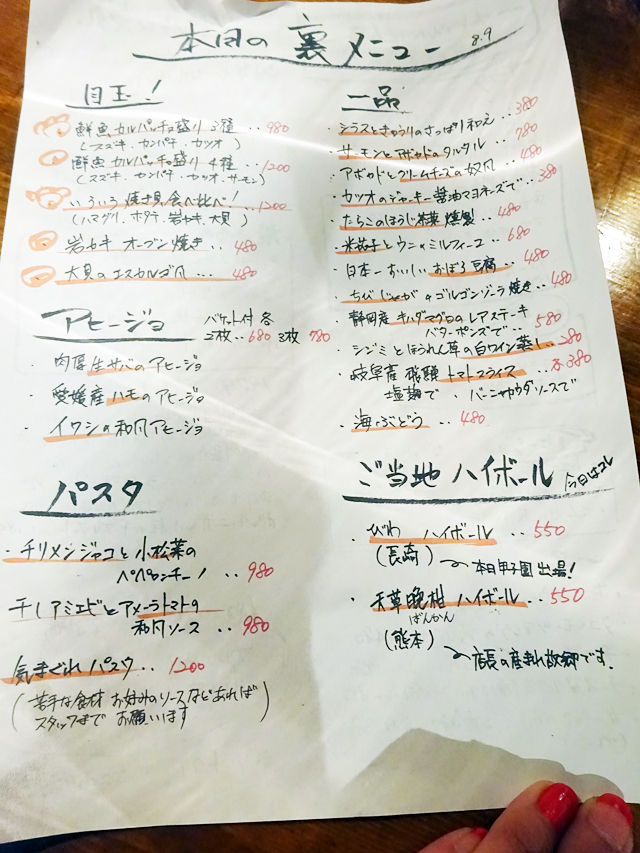 本日の 裏 メニュー 8.9
目玉!
鮮魚 カルパッチョ盛り 3種 ‥ 980
(スズキ・カンパチ・カツオ)
鮮魚 カルパッチョ盛り 4種 ‥ 1200
(スズキ、カンパチ、カツオ、サーモン)
いろいろ焼き貝食べ比べ! ‥ 1200
(ハマグリ、ホタテ、岩カキ、大貝)
岩カキ オーブン焼き ‥ 480
大貝のエスカルゴ風 ‥ 480
アヒージョ
バケット付 各
2枚‥680 3枚 780
・肉厚生サバのアヒージョ
・愛媛産 ハモのアヒージョ
・イワシの和風アヒージョ
パスタ
・チリメンジャコと小松菜の
ペペロンチーノ ‥ 980
干しアミエビとアメーラトマトの
和風ソース ‥ 980
気まぐれパスタ ‥ 1200
(苦手な食材 お好みのソースなどあれば
スタッフまで お願います)
一品
・シラスときゅうりのさっぱり和え ‥ 380
・サーモンとアボカドのタルタル ‥ 780
・アボカドとクリームチーズの奴風 ‥ 480
・カツオのジャーキー 醤油マヨネーズで ‥ 380
・たらこのほうじ茶葉 燻製 ‥ 480
・米茄子とウニのミルフィーユ ‥ 680
・日本一おいしい おぼろ豆腐 ‥ 480
・ちびじゃがのゴルゴンゾーラ焼き ‥ 480
・静岡産 キハダマグロのレアステーキ
バターポンズで ‥ 580
・シジミとほうれん草の白ワイン蒸し ‥ 280
・岐阜産 飛騨トマトフライス ‥ 各380
塩麹で ・バーニャカウダソースで
・海ぶどう ‥ 480
ご当地 ハイボール 今日はコレ
・びわ ハイボール ‥ 550
(長崎) 本日甲子園出場!
・天草晩柑 ハイボール ‥ 550
ばんかん
(熊本) 店長の産まれ故郷です。